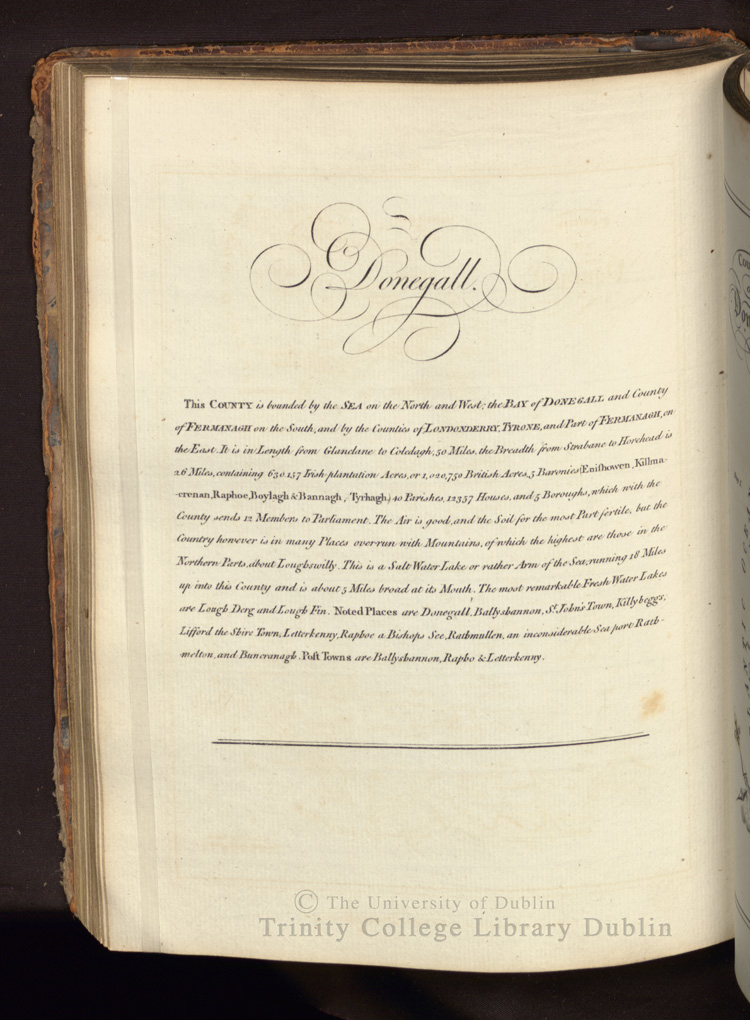 Donegall.
This COUNTY is bounded by the SEA on the North and West; the BAY of DONEGALL and County
of FERMANAGH on the South, and by the Counties of LONDONDERRY, TYRONE, and Part of FERMANAGH, on
the East. It is in Length from Glanclane to Coledagh, 50 Miles, the Breadth from Strabane to Hornhead is
26 Miles, containing 630.157 Irish plantation Acres, or 1,020,750 British Acres, 5 Baronies (Enishowen, Killma-
-crenan, Raphoe, Boylagh & Bannagh, Tyrhagh,) 40 Parishes, 12357 Houses, and 5 Boroughs, which with the
County sends 12 Members to Parliament. The Air is good, and the Soil for the most Part fertile, but the
Country however is in many Places over-run with Mountains, of which the highest are those in the
Northern Parts, about Loughswilly. This is a Salt Water Lake or rather Arm of the Sea, running 18 Miles
up into this County and is about 5 Miles broad at its Mouth. The most remarkable Fresh Water Lakes
are Lough Derg and Lough Fin. Noted Places are Donegall, Ballyshannon, St. John's Town, Killybeggs,
Lifford the Shire Town, Letterkenny, Raphoe a Bishops See, Rathmullen, an inconsiderable Sea port Rath-
-melton, and Buncranagh. Post Towns are Ballyshannon, Rapho & Letterkenny.
© The University of Dublin
Trinity College Library Dublin